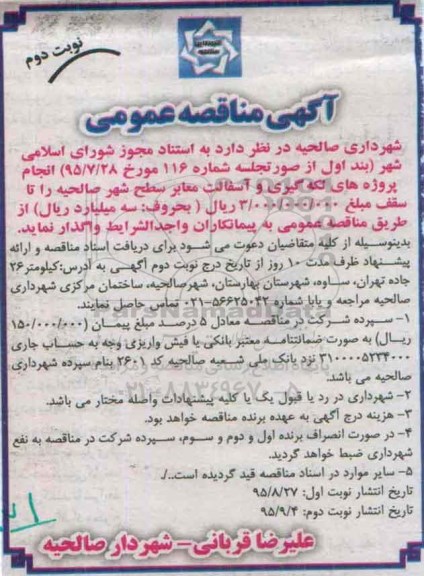 نوبت دوم
آگهی مناقصه عمومی
شهرداری صالحیه در نظر دارد به استناد مجوز شورای اسلامی
شهر (بند اول از صورتجلسه شماره ۱۱۶ مورخ ۹۵/۷/۲۸) انجام
پروژه های لکه گیری و آسفالت معابر سطح شهر صالحیه را تا
سقف مبلغ ۳/۰۰۰/۰۰۰/۰۰۰ ریال ( بحروف: سه میلیارد ریال) از
طریق مناقصه عمومی به پیمانکاران واجدالشرایط واگذار نماید.
بدینوسیله از کلیه متقاضیان دعوت می شود برای دریافت اسناد مناقصه و ارائه
پیشنهاد ظرف مدت ۱۰ روز از تاریخ درج نوبت دوم آگهی به آدرس: کیلومتر ۲۶
جاده تهران، ساوه، شهرستان بهارستان، شهرصالحیه، ساختمان مرکزی شهرداری
صالحیه مراجعه و یابا شماره ۵۶۶۲۵۰۴۲-۰۲۱ تماس حاصل نمایند.
۱- سپرده شرکت در مناقصه معادل ۵ درصد مبلغ پیمان (۱۵۰/۰۰۰/۰۰۰
ریال) به صورت ضمانتنامه معتبر بانکی یا فیش واریزی وجه به حساب جاری
۳۱۰۰۰۰۵۲۳۴۰۰۰ نزد بانک ملی شعبه صالحیه کد ۲۶۰۱ بنام سپرده شهرداری
صالحیه می باشد.
۲- شهرداری در رد یا قبول یک یا کلیه پیشنهادات واصله مختار می باشد.
۳- هزینه درج آگهی به عهده برنده مناقصه خواهد بود.
۴- در صورت انصراف برنده اول و دوم و سوم، سپرده شرکت در مناقصه به نفع
شهرداری ضبط خواهد گردید.
۵- سایر موارد در اسناد مناقصه قید گردیده است./.
تاریخ انتشار نوبت اول: ۹۵/۸/۲۷
تاریخ انتشار نوبت دوم: ۹۵/۹/۴
علیرضا قربانی- شهردار صالحیه